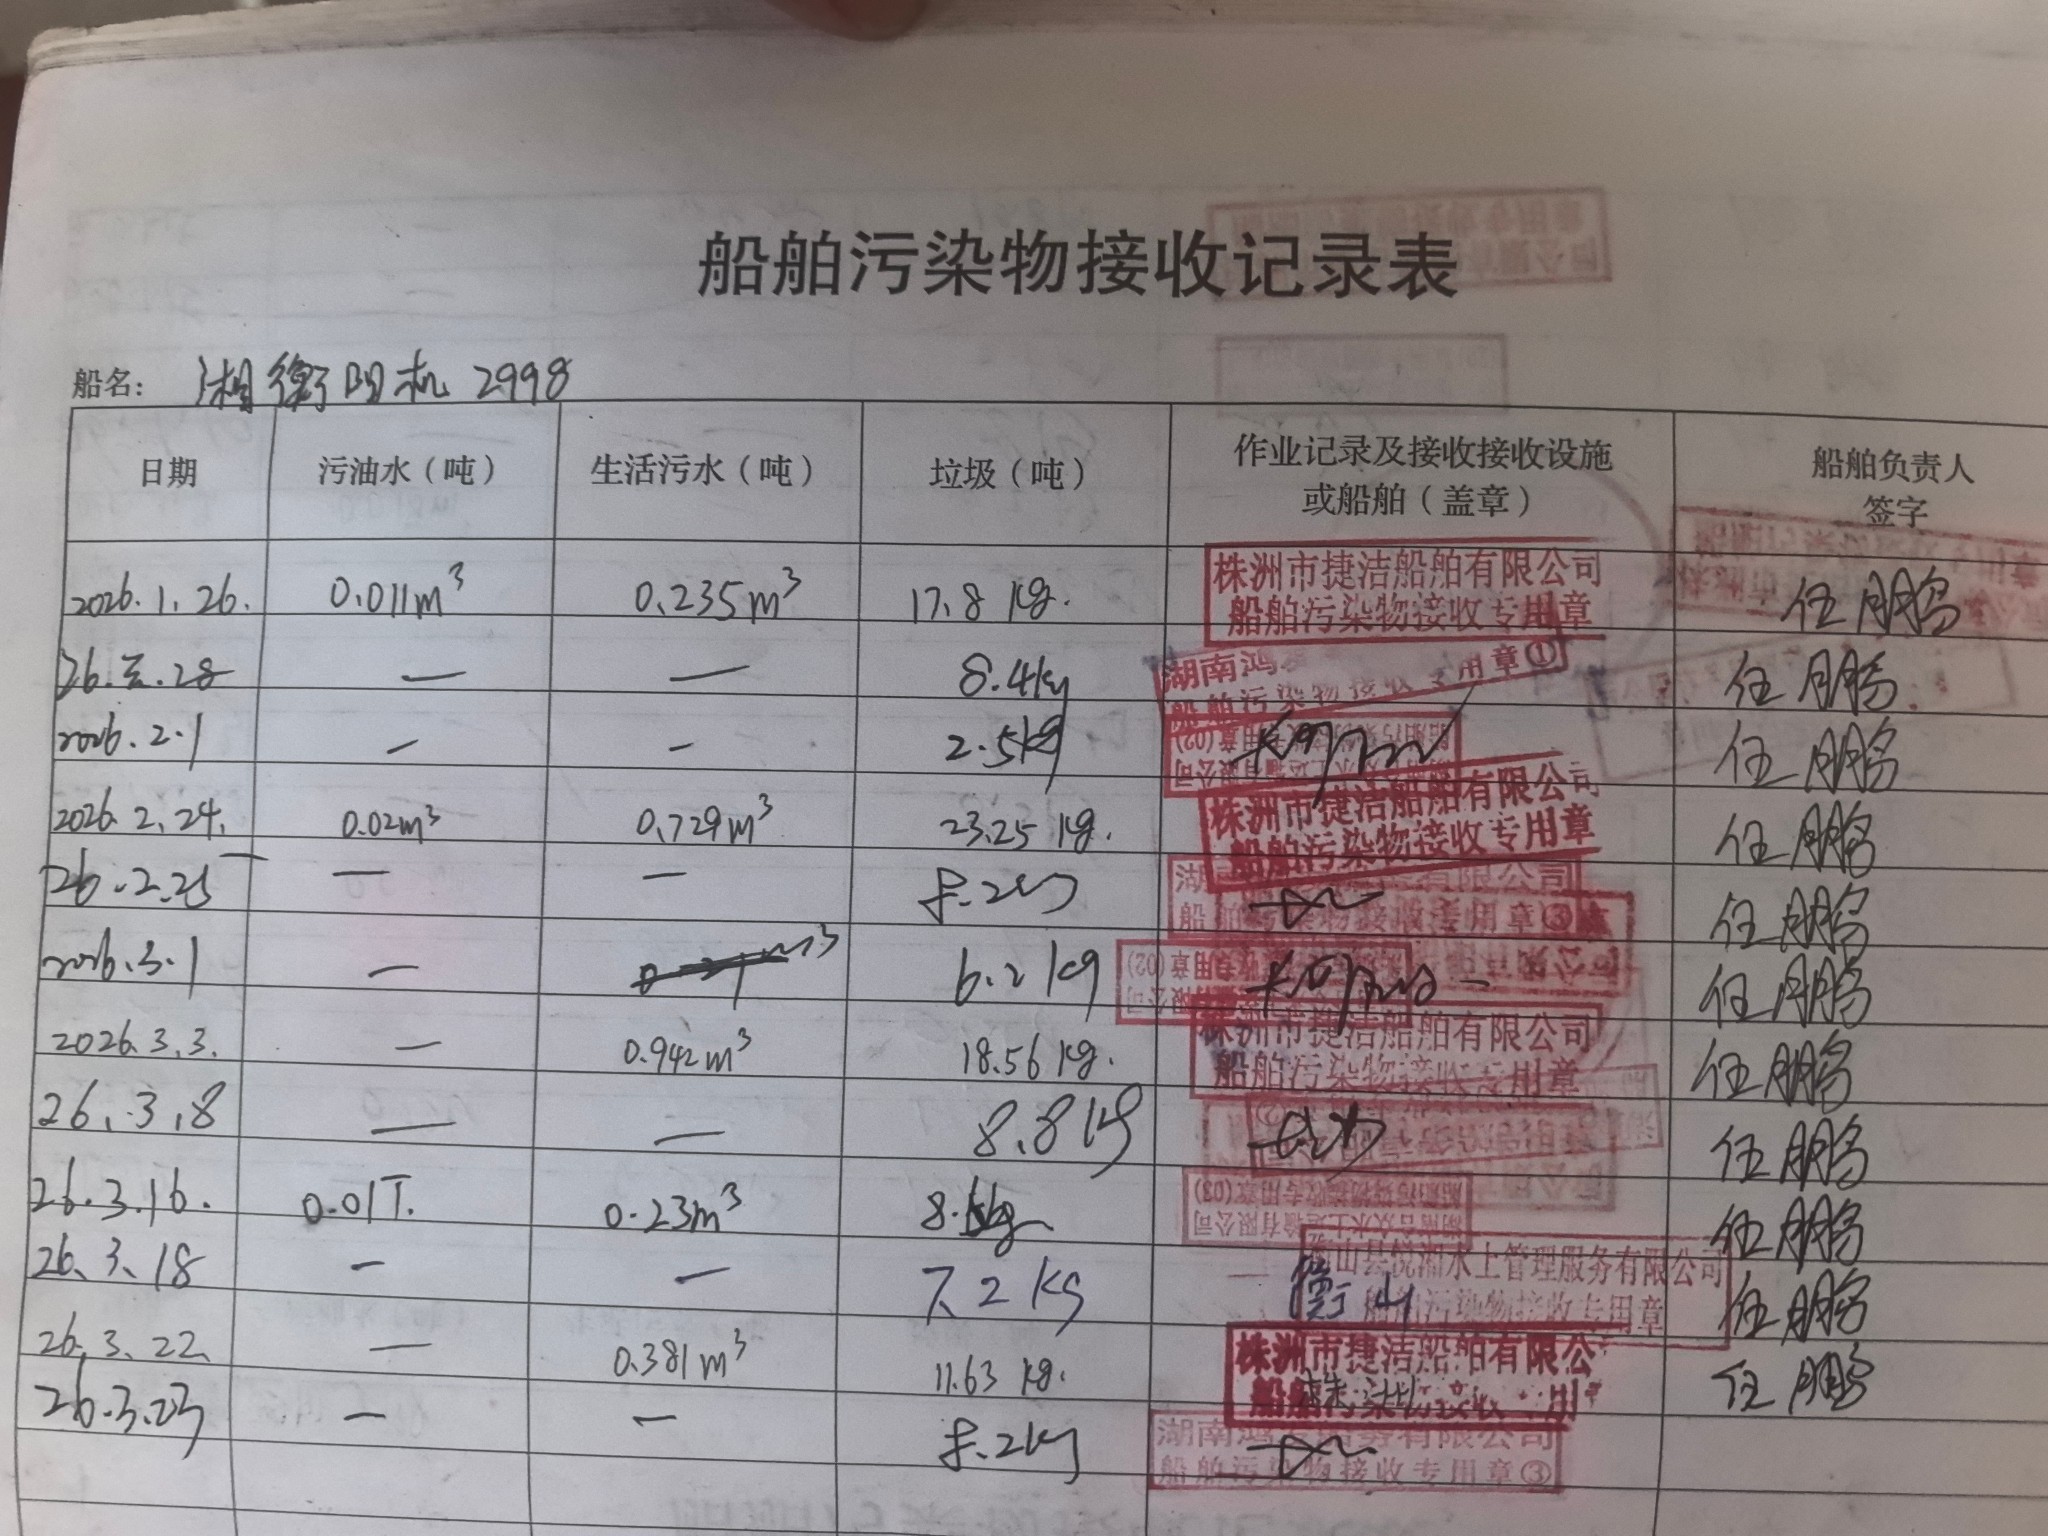 船舶污染物接收记录表
船名: 湘衡阳机 2998
日期 污油水（吨） 生活污水（吨） 垃圾（吨） 作业记录及接收接收设施或船舶（盖章） 船舶负责人签字
2026.1.26. 0.011m³ 0.235m³ 17.8 kg. 株洲市捷洁船舶有限公司 船舶污染物接收专用章 任鹏
26. .28 — — 8.4kg 湖南鸿 船舶污染物接收专用章① 任鹏
2026.2.1 — — 2.5kg 任鹏
2026.2.24. 0.02m³ 0.729m³ 23.25 kg. 株洲市捷洁船舶有限公司 船舶污染物接收专用章 任鹏
26.2.25 — — .2kg 船舶污染物接收专用章③ 任鹏
2026.3.1 — 6.2kg 任鹏
2026.3.3. — 0.942m³ 18.56 kg. 株洲市捷洁船舶有限公司 船舶污染物接收专用章 任鹏
26.3.8 — — 8.8kg 任鹏
26.3.16. 0.01T. 0.23m³ 船舶污染物接收专用章(03) 任鹏
26.3.18 — — 7.2kg 衡山 衡山县悦湘水上管理服务有限公司 船舶污染物接收专用章 任鹏
26.3.22. — 0.381m³ 11.63 kg. 株洲市捷洁船舶有限公 株洲 任鹏
26.3.23 — — .2kg 湖南鸿 有限公司 船舶污染物接收专用章③